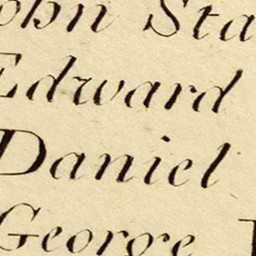 ohn Sta
Edward
Daniel
George